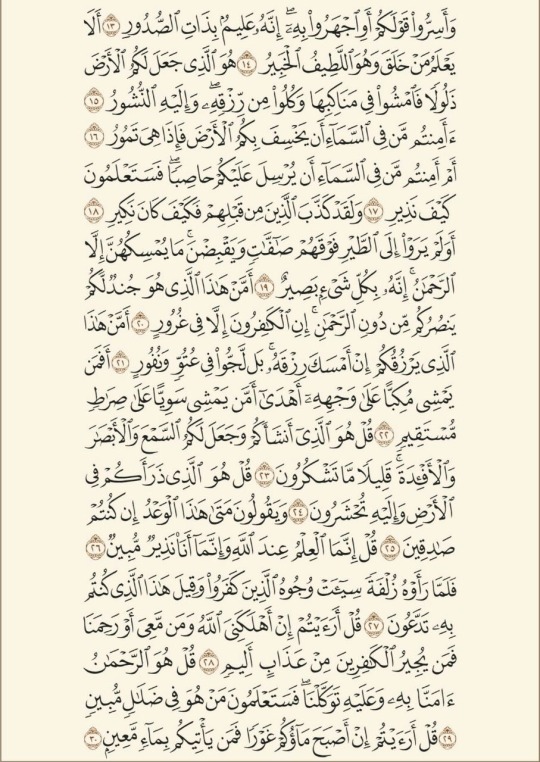 وَأَسِرُّوا۟ قَوْلَكُمْ أَوِ ٱجْهَرُوا۟ بِهِۦٓ ۖ إِنَّهُۥ عَلِيمٌۢ بِذَاتِ ٱلصُّدُورِ ١٣ أَلَا
يَعْلَمُ مَنْ خَلَقَ وَهُوَ ٱللَّطِيفُ ٱلْخَبِيرُ ١٤ هُوَ ٱلَّذِى جَعَلَ لَكُمُ ٱلْأَرْضَ
ذَلُولًا فَٱمْشُوا۟ فِى مَنَاكِبِهَا وَكُلُوا۟ مِن رِّزْقِهِۦ ۖ وَإِلَيْهِ ٱلنُّشُورُ ١٥
ءَأَمِنتُم مَّن فِى ٱلسَّمَآءِ أَن يَخْسِفَ بِكُمُ ٱلْأَرْضَ فَإِذَا هِىَ تَمُورُ ١٦
أَمْ أَمِنتُم مَّن فِى ٱلسَّمَآءِ أَن يُرْسِلَ عَلَيْكُمْ حَاصِبًا ۖ فَسَتَعْلَمُونَ
كَيْفَ نَذِيرِ ١٧ وَلَقَدْ كَذَّبَ ٱلَّذِينَ مِن قَبْلِهِمْ فَكَيْفَ كَانَ نَكِيرِ ١٨
أَوَلَمْ يَرَوْا۟ إِلَى ٱلطَّيْرِ فَوْقَهُمْ صَٰٓفَّٰتٍ وَيَقْبِضْنَ ۚ مَا يُمْسِكُهُنَّ إِلَّا
ٱلرَّحْمَٰنُ ۚ إِنَّهُۥ بِكُلِّ شَىْءٍۭ بَصِيرٌ ١٩ أَمَّنْ هَٰذَا ٱلَّذِى هُوَ جُندٌ لَّكُمْ
يَنصُرُكُم مِّن دُونِ ٱلرَّحْمَٰنِ ۚ إِنِ ٱلْكَٰفِرُونَ إِلَّا فِى غُرُورٍ ٢٠ أَمَّنْ هَٰذَا
ٱلَّذِى يَرْزُقُكُمْ إِنْ أَمْسَكَ رِزْقَهُۥ ۚ بَل لَّجُّوا۟ فِى عُتُوٍّ وَنُفُورٍ ٢١ أَفَمَن
يَمْشِى مُكِبًّا عَلَىٰ وَجْهِهِۦٓ أَهْدَىٰٓ أَمَّن يَمْشِى سَوِيًّا عَلَىٰ صِرَٰطٍ
مُّسْتَقِيمٍ ٢٢ قُلْ هُوَ ٱلَّذِىٓ أَنشَأَكُمْ وَجَعَلَ لَكُمُ ٱلسَّمْعَ وَٱلْأَبْصَٰرَ
وَٱلْأَفْـِٔدَةَ ۖ قَلِيلًا مَّا تَشْكُرُونَ ٢٣ قُلْ هُوَ ٱلَّذِى ذَرَأَكُمْ فِى
ٱلْأَرْضِ وَإِلَيْهِ تُحْشَرُونَ ٢٤ وَيَقُولُونَ مَتَىٰ هَٰذَا ٱلْوَعْدُ إِن كُنتُمْ
صَٰدِقِينَ ٢٥ قُلْ إِنَّمَا ٱلْعِلْمُ عِندَ ٱللَّهِ وَإِنَّمَآ أَنَا۠ نَذِيرٌ مُّبِينٌ ٢٦
فَلَمَّا رَأَوْهُ زُلْفَةً سِيٓـَٔتْ وُجُوهُ ٱلَّذِينَ كَفَرُوا۟ وَقِيلَ هَٰذَا ٱلَّذِى كُنتُم
بِهِۦ تَدَّعُونَ ٢٧ قُلْ أَرَءَيْتُمْ إِنْ أَهْلَكَنِىَ ٱللَّهُ وَمَن مَّعِىَ أَوْ رَحِمَنَا
فَمَن يُجِيرُ ٱلْكَٰفِرِينَ مِنْ عَذَابٍ أَلِيمٍ ٢٨ قُلْ هُوَ ٱلرَّحْمَٰنُ
ءَامَنَّا بِهِۦ وَعَلَيْهِ تَوَكَّلْنَا ۖ فَسَتَعْلَمُونَ مَنْ هُوَ فِى ضَلَٰلٍ مُّبِينٍ
٢٩ قُلْ أَرَءَيْتُمْ إِنْ أَصْبَحَ مَآؤُكُمْ غَوْرًا فَمَن يَأْتِيكُم بِمَآءٍ مَّعِينٍۭ ٣٠